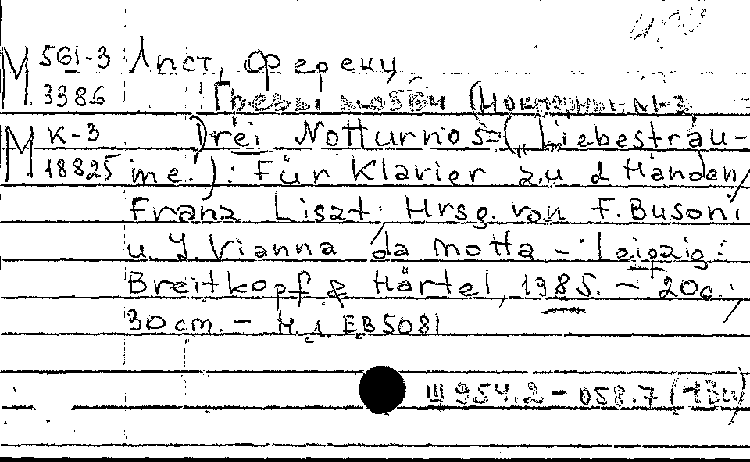 М 561-3 Лист, Ференц
3386 Грезы любви (Ноктюрны №1-3
М К-3 Drei Notturnos=(„Liebesträu-
18825 me."): Für Klavier zu 2 Händen/
Franz Liszt; Hrsg. von F. Busoni
u. J. Vianna da Motta – Leipzig:
Breitkopf & Härtel, 1985. – 20c.;
30 cm. – Н.д. EB 5081
Ш 954.2 – 058.7